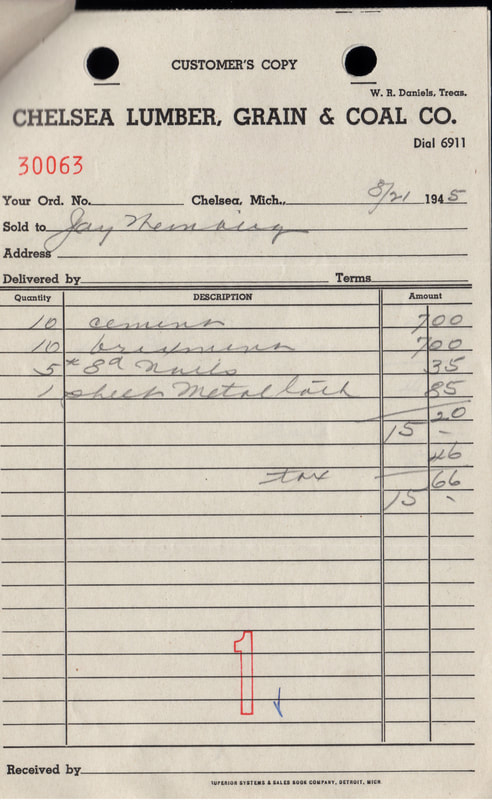 CUSTOMER'S COPY
W. R. Daniels, Treas.
CHELSEA LUMBER, GRAIN & COAL CO.
Dial 6911
30063
Your Ord. No. Chelsea, Mich., 8/21 1945
Sold to Jay
Address
Delivered by Terms
Quantity DESCRIPTION Amount
10 cement 7 00
10 brixment 7 00
5# 8d nails 35
1 sheet Metal lath 85
15 20
46
tax
15 66
1
Received by
SUPERIOR SYSTEMS & SALES BOOK COMPANY, DETROIT, MICH.